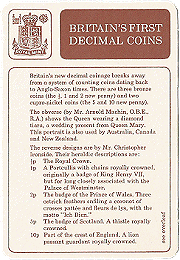 BRITAIN'S FIRST
DECIMAL COINS
ROYAL MINT
Britain's new decimal coinage breaks away
from a system of counting coins dating back
to Anglo-Saxon times. There are three bronze
coins (the ½, 1 and 2 new penny) and two
cupro-nickel coins (the 5 and 10 new penny).
The obverse (by Mr. Arnold Machin, O.B.E.,
R.A.) shows the Queen wearing a diamond
tiara, a wedding present from Queen Mary.
This portrait is also used by Australia, Canada,
and New Zealand.
The reverse designs are by Mr. Christopher
Ironside. Their heraldic descriptions are:
½p The Royal Crown.
1p A Portcullis with chains royally crowned,
originally a badge of King Henry VII,
but for long closely associated with the
Palace of Westminster.
2p The badge of the Prince of Wales. Three
ostrich feathers enfiling a coronet of
crosses pattée and fleurs de lys, with the
motto "Ich Dien."
5p The badge of Scotland. A thistle royally
crowned.
10p Part of the crest of England. A lion
passant guardant royally crowned.
see overleaf